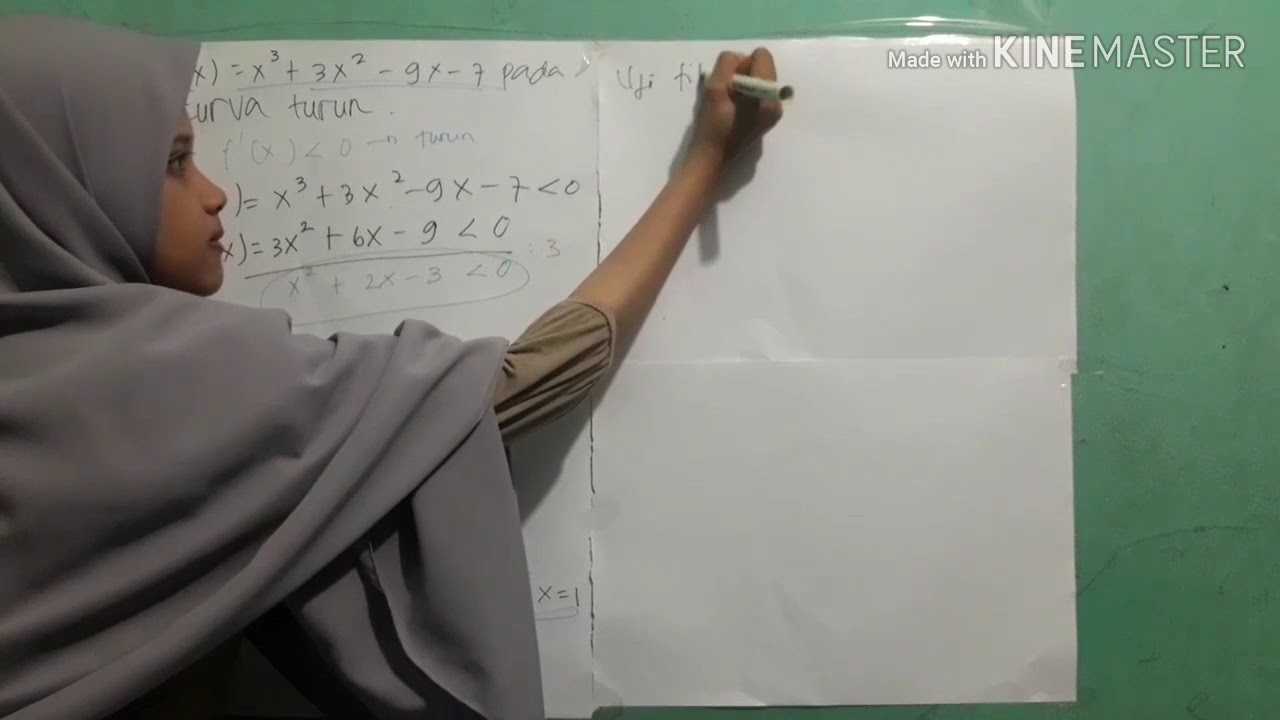 Made with KINEMASTER
x) = x³ + 3x² - 9x - 7 pada
urva turun.
f'(x) < 0 → turun
) = x³ + 3x² - 9x - 7 < 0
x) = 3x² + 6x - 9 < 0
: 3
x² + 2x - 3 < 0
x = 1
Uji